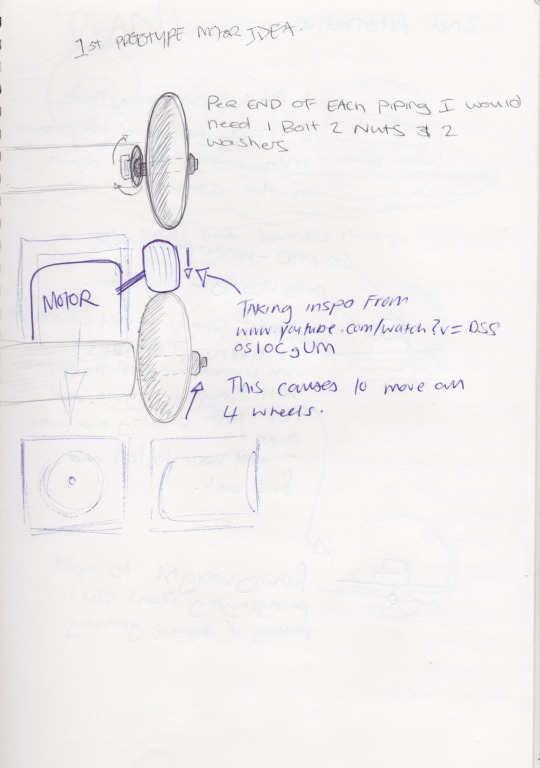 1st PROTOTYPE MOTOR IDEA.
PER END OF EACH PIPING I would
need 1 Bolt 2 Nuts & 2
washers
MOTOR
Taking inspo From
www.youtube.com/watch?v=DSS
OS10CgUM
This causes to move all
4 wheels.